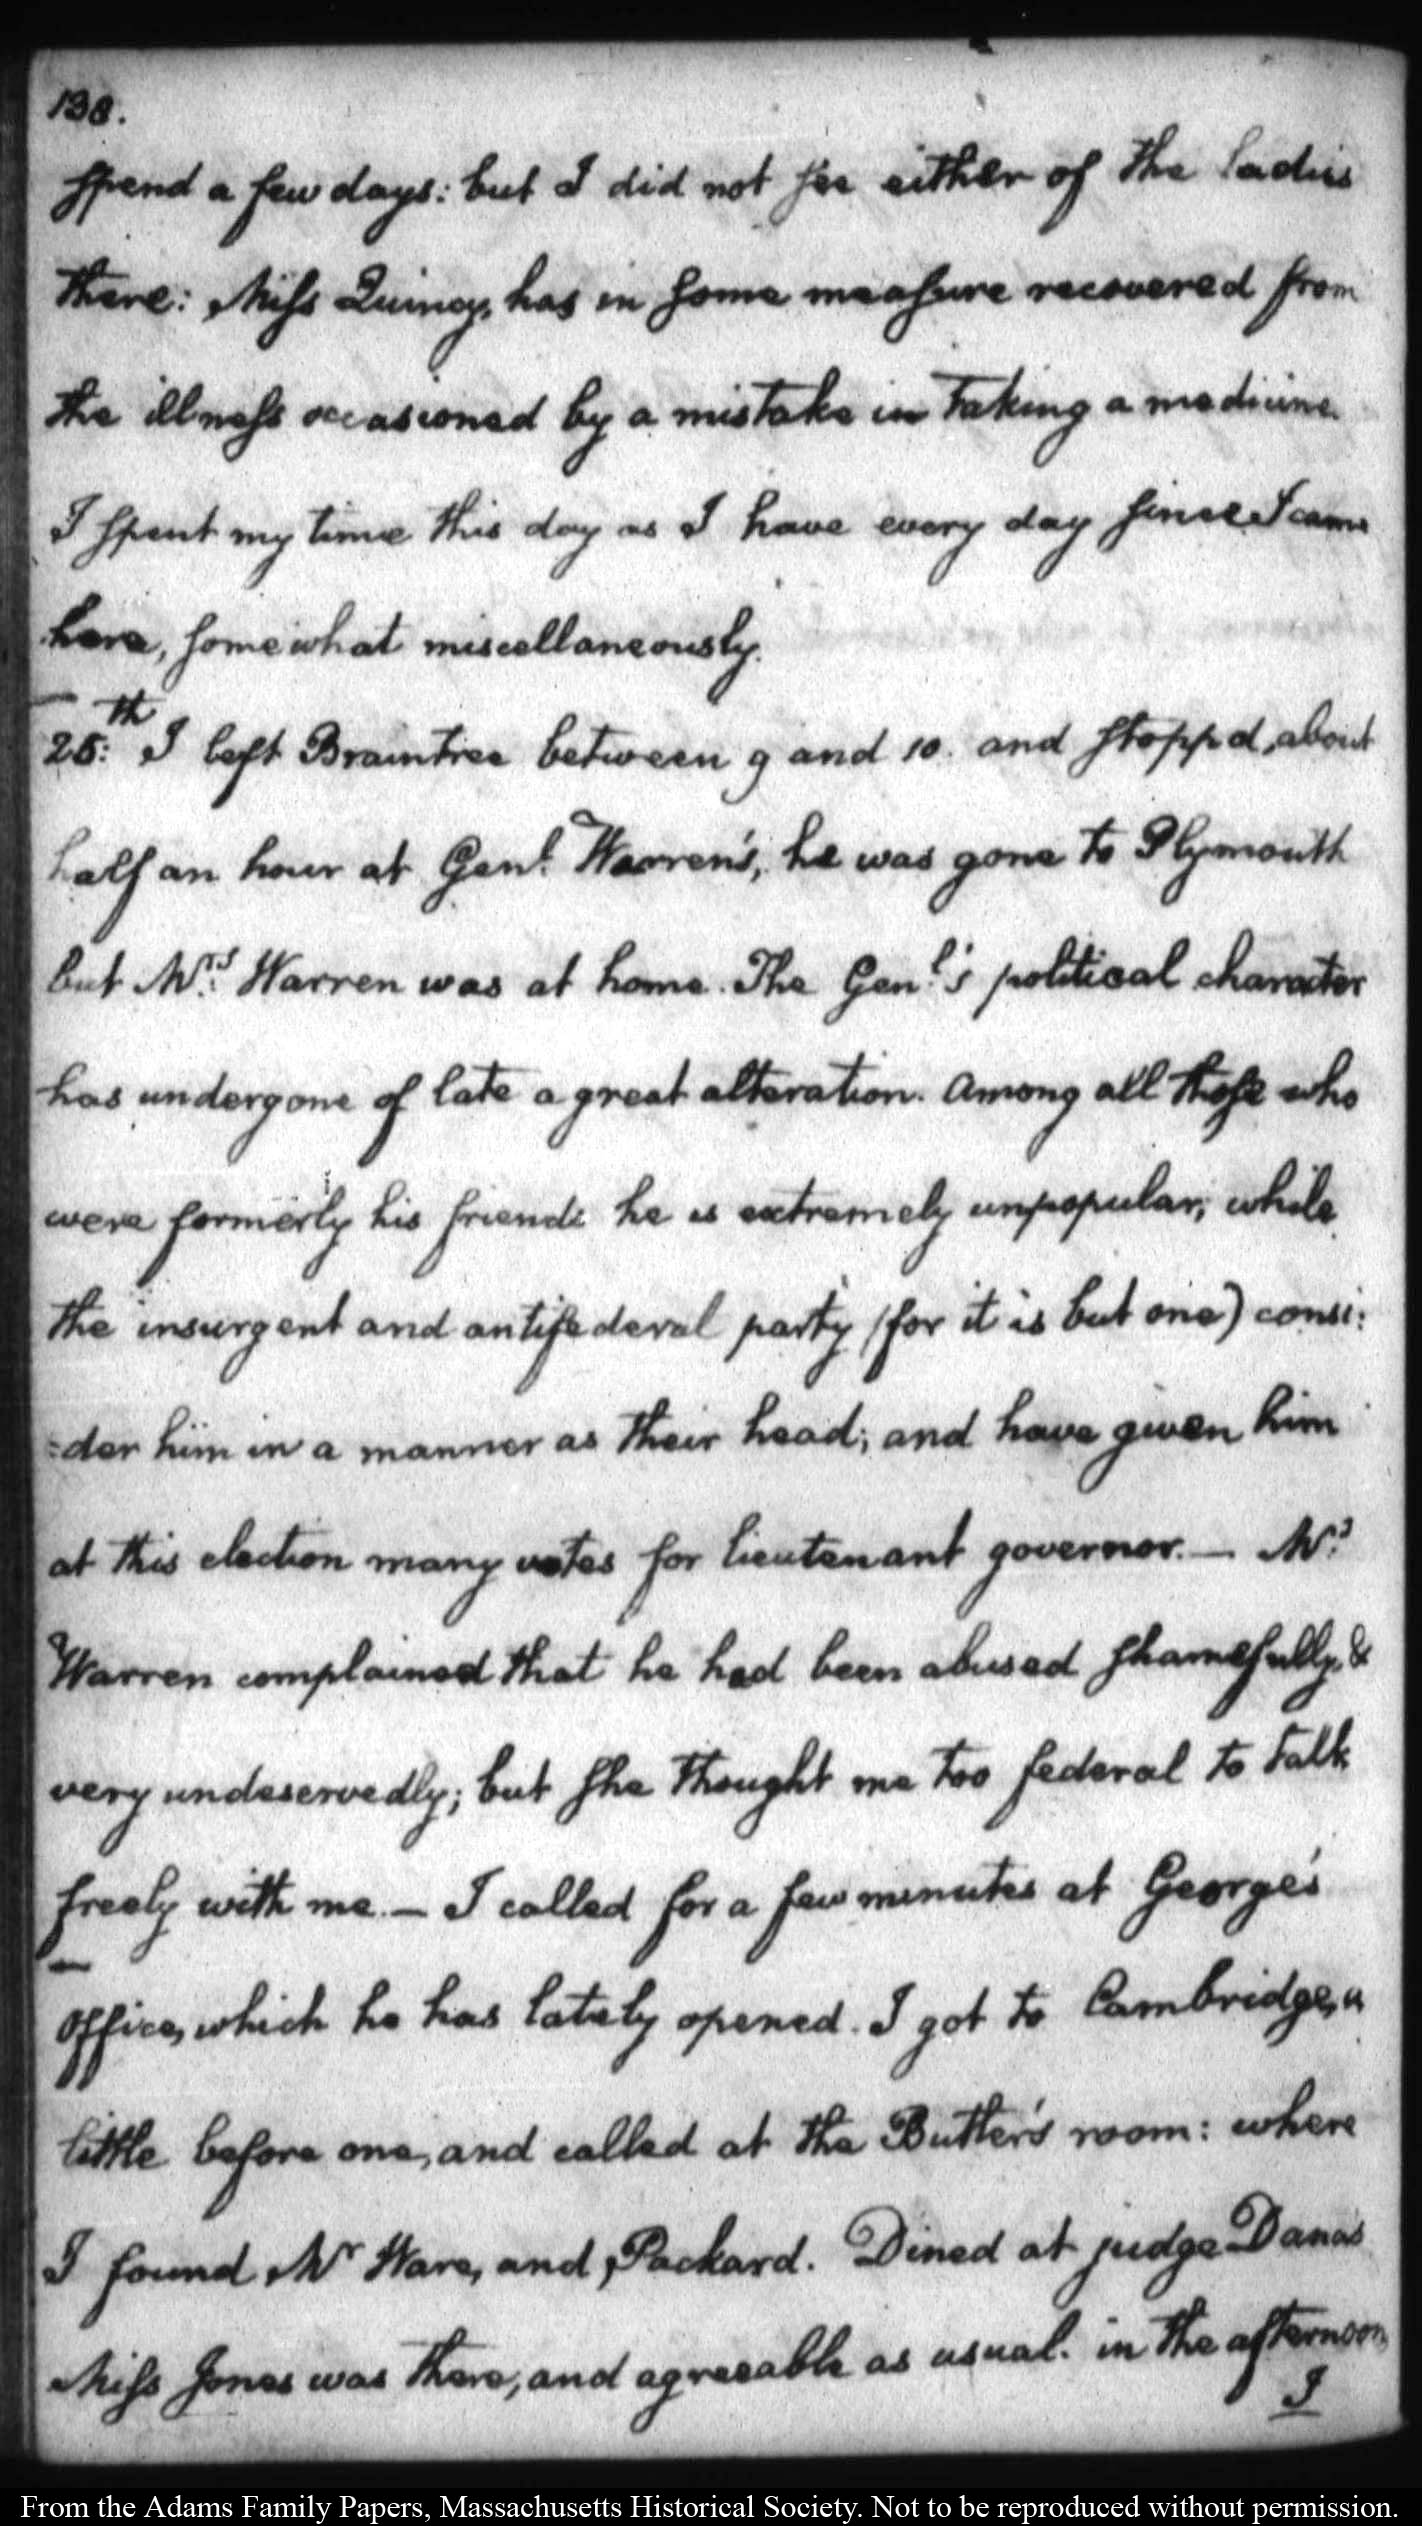 138.
spend a few days: but I did not see either of the Ladies
there: Miss Quincy, has in some measure recovered from
the illness occasioned by a mistake in taking a medicine.
I spent my time this day as I have every day since I came
here, somewhat miscellaneously.
25:th I left Braintree between 9 and 10. and stopp'd, about
half an hour at Genl. Warren's, he was gone to Plymouth
but Mrs. Warren was at home. The Genl.'s political character
has undergone of late a great alteration. Among all those who
were formerly his friends he is extremely unpopular; while
the insurgent and antifederal party (for it is but one) consi:
:der him in a manner as their head; and have given him
at this election many votes for lieutenant governor. — Mrs.
Warren complained that he had been abused shamefully, &
very undeservedly; but she thought me too federal to talk
freely with me. — I called for a few minutes at George's
office, which he has lately opened. I got to Cambridge, a
little before one, and called at the Butler's room: where
I found Mr Ware, and Packard. Dined at judge Danas
Miss Jones was there, and agreeable as usual. in the afternoon
I
From the Adams Family Papers, Massachusetts Historical Society. Not to be reproduced without permission.